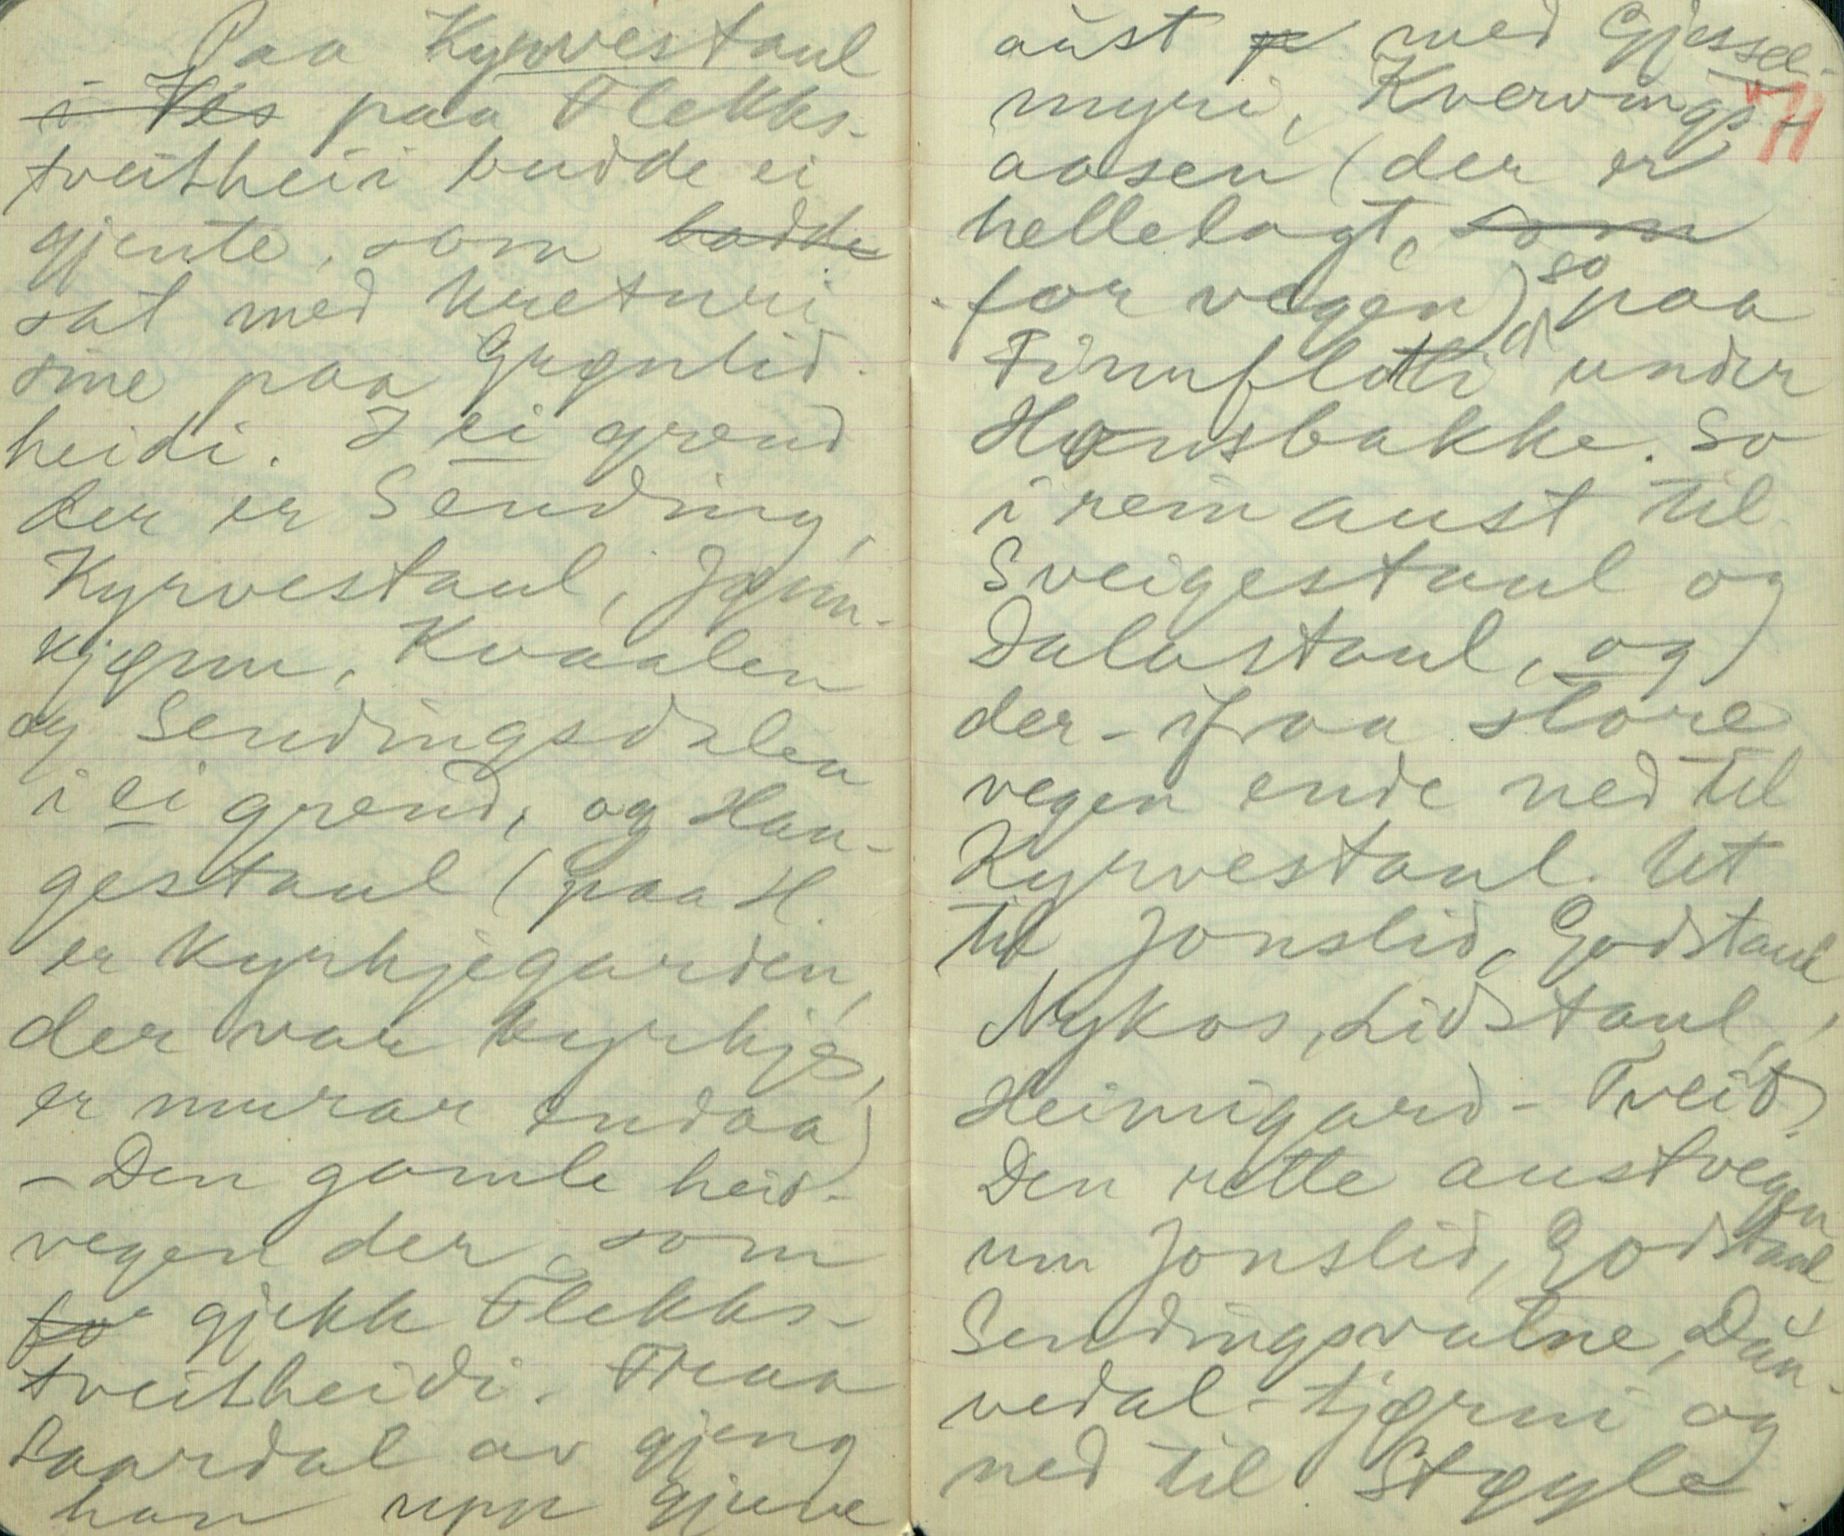 Paa Kyrvestaul
i Vés paa Flekks-
tveitheii budde ei
gjente, som hadde
sat med kreturi
sine paa Grønlid-
heidi. I ei grend
der er Sending,
Kyrvestaul, Jønn-
kjønn, Kvaalen
og Sendingsdalen
i ei grend, og Hau-
gestaul (paa H.
er kyrkjegarden,
der var kyrkje,
er murar endaa)
- Den gamle heid-
vegen der, som
fo gjekk Flekks-
tveitheidi. Fraa
Saardal av gjeng
han upp gjøve
aust p med Gjessel-
myri, Kvervings-
71
aasen (der er
hellelagt, som
for vegen), so paa
Finnflotti under
Hansbakke. So
i rein aust til
Sveigestaul og
Dalastaul, og
der-ifraa store
vegen ende ned til
Kyrvestaul. Ut
til Jonslid, Godstaul
Nykos, Lidstaul,
Heimigard-Tveit.
Den rette austvegen
um Jonslid, Godstaul
Sendingsvatne, Daa-
vedal-tjørni og
ned til Støyle.